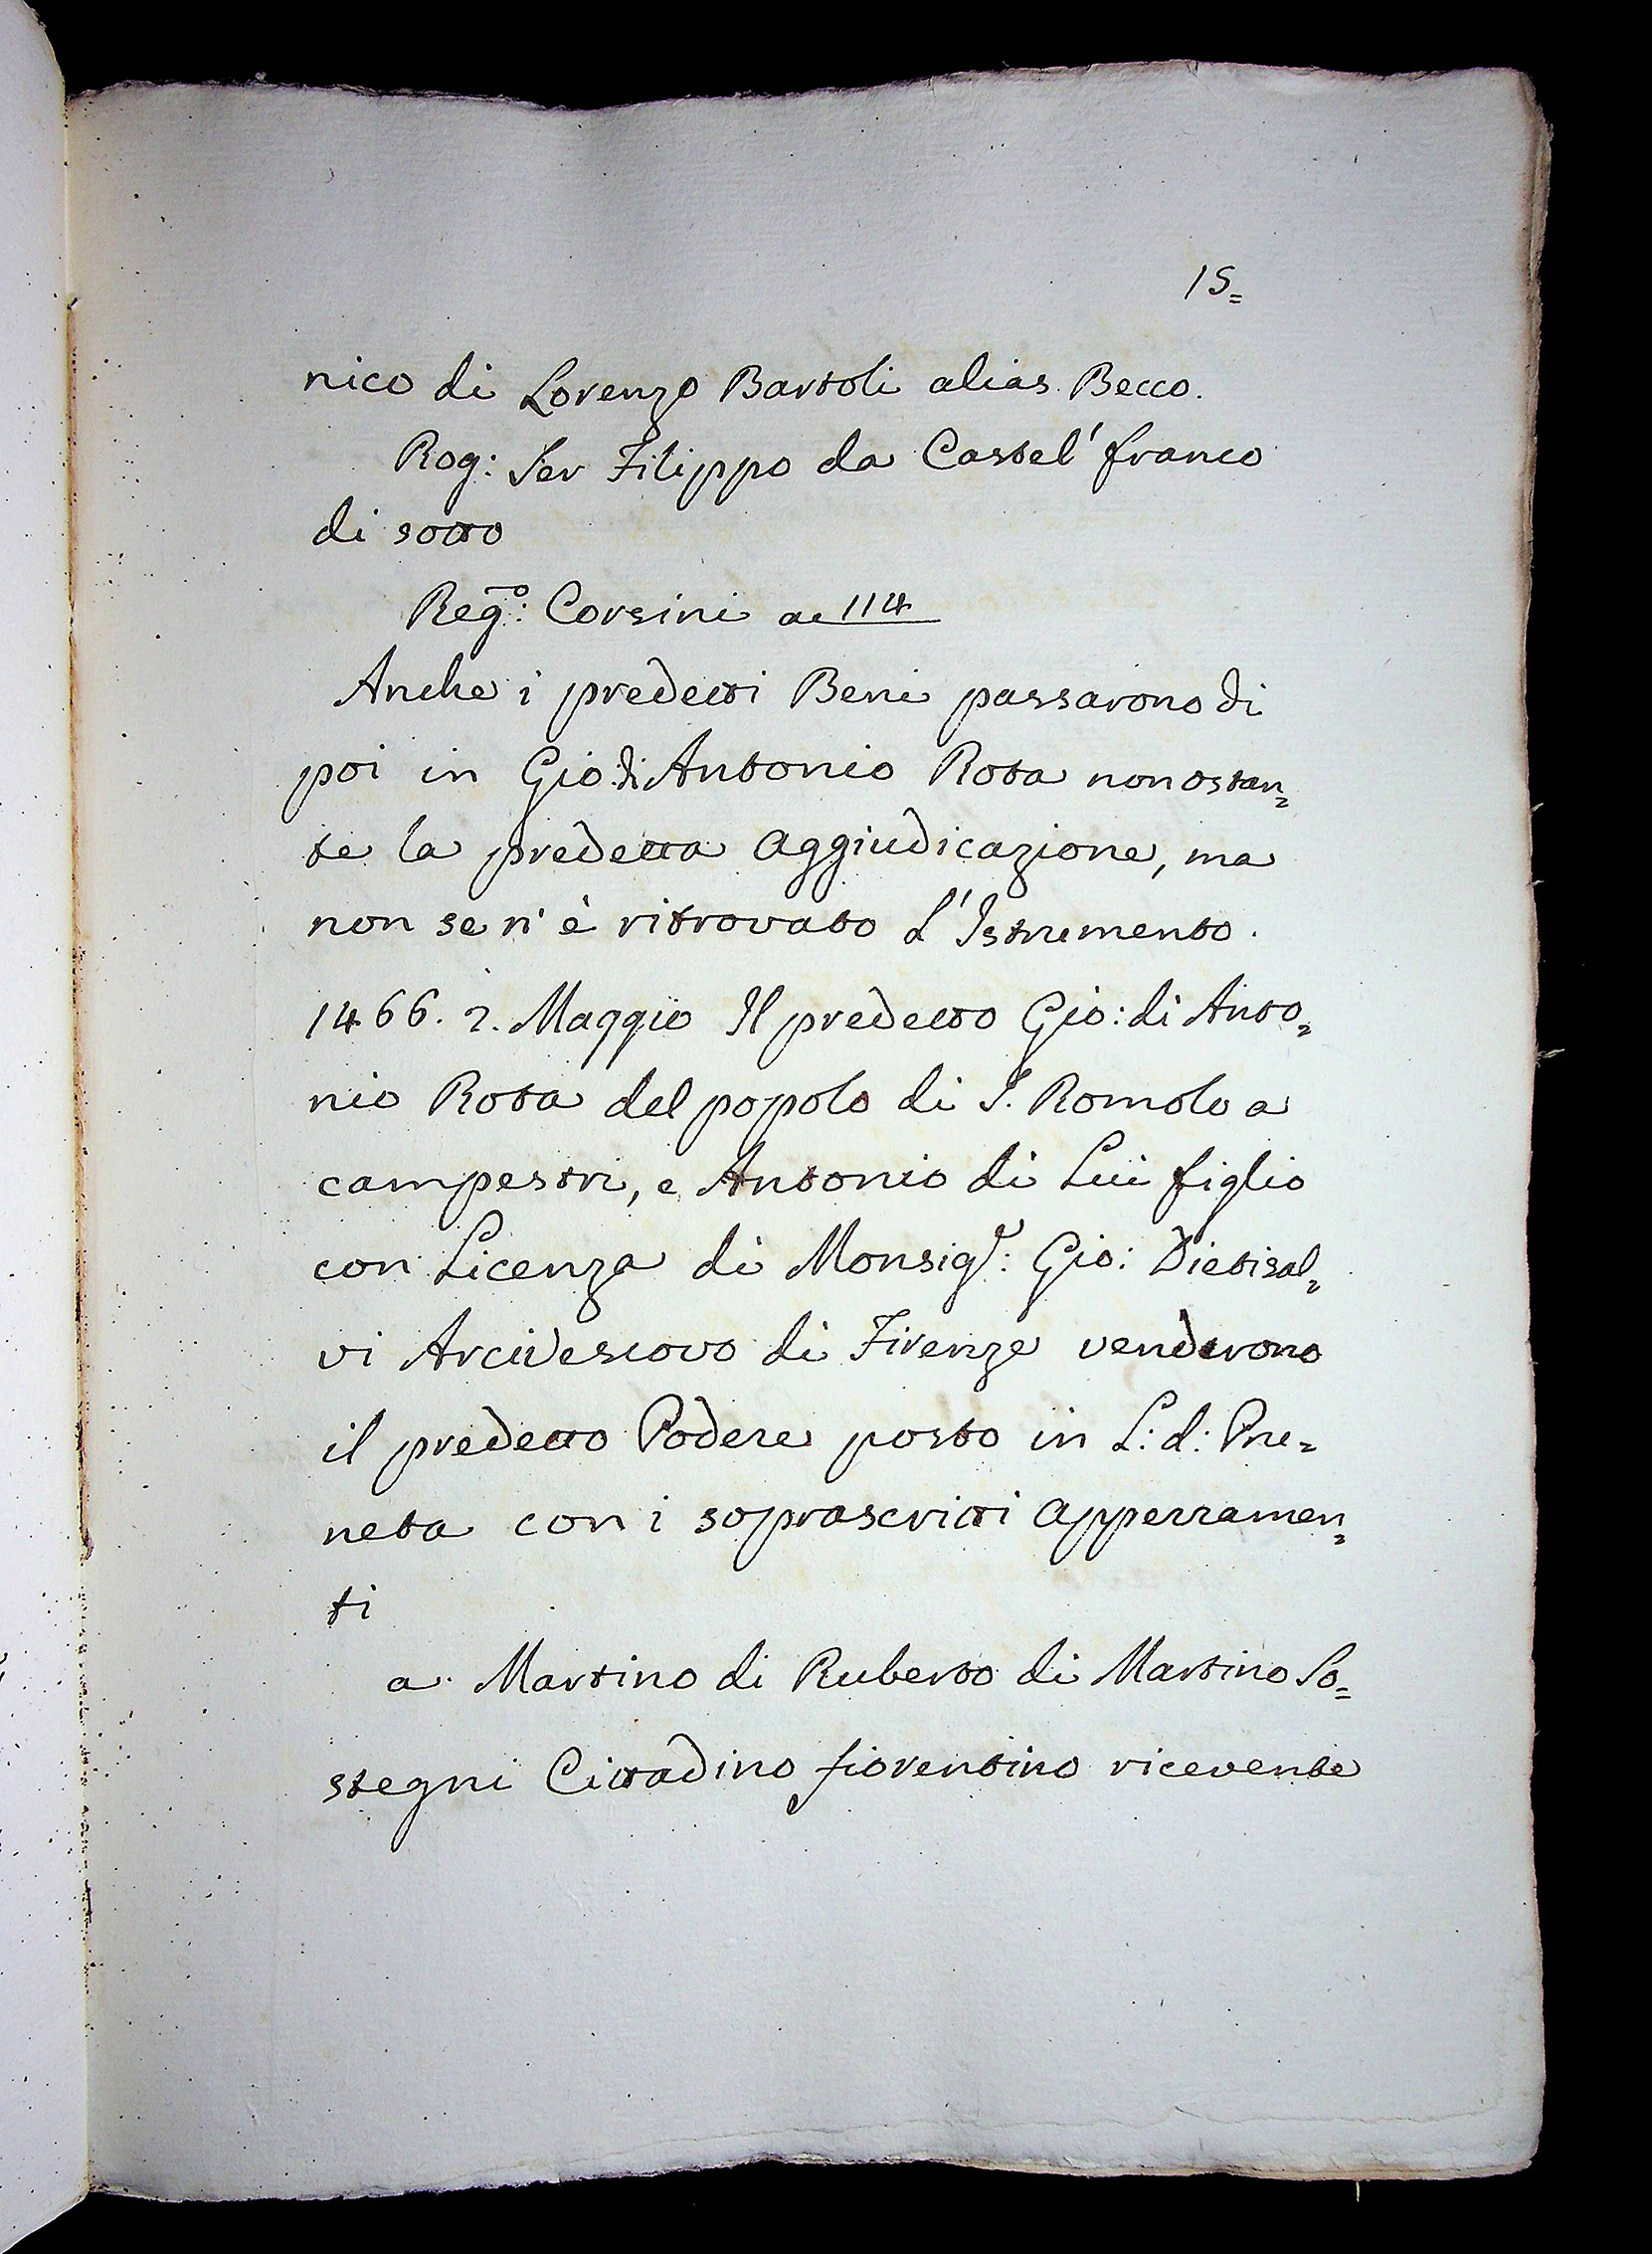 15=
nico di Lorenzo Bartoli alias Becco.
Rog: Ser Filippo da Castel' franco
di sotto
Reg.º: Corsini a 114
Anche i predetti Beni passarono di
poi in Gio: di Antonio Rota non ostan=
te la predetta aggiudicazione, ma
non se n'è ritrovato L'Istrumento.
1466. 2. Maggio Il predetto Gio: di Anto=
nio Rota del popolo di S. Romolo a
campestri, e Antonio di Lui figlio
con Licenza di Monsig.r: Gio: Dietisal=
vi Arcivescovo di Firenze venderono
il predetto Podere posto in L: d: Pru=
neta con i soprascritti apperzamen=
ti
a Martino di Ruberto di Martino So=
stegni Cittadino fiorentino ricevente